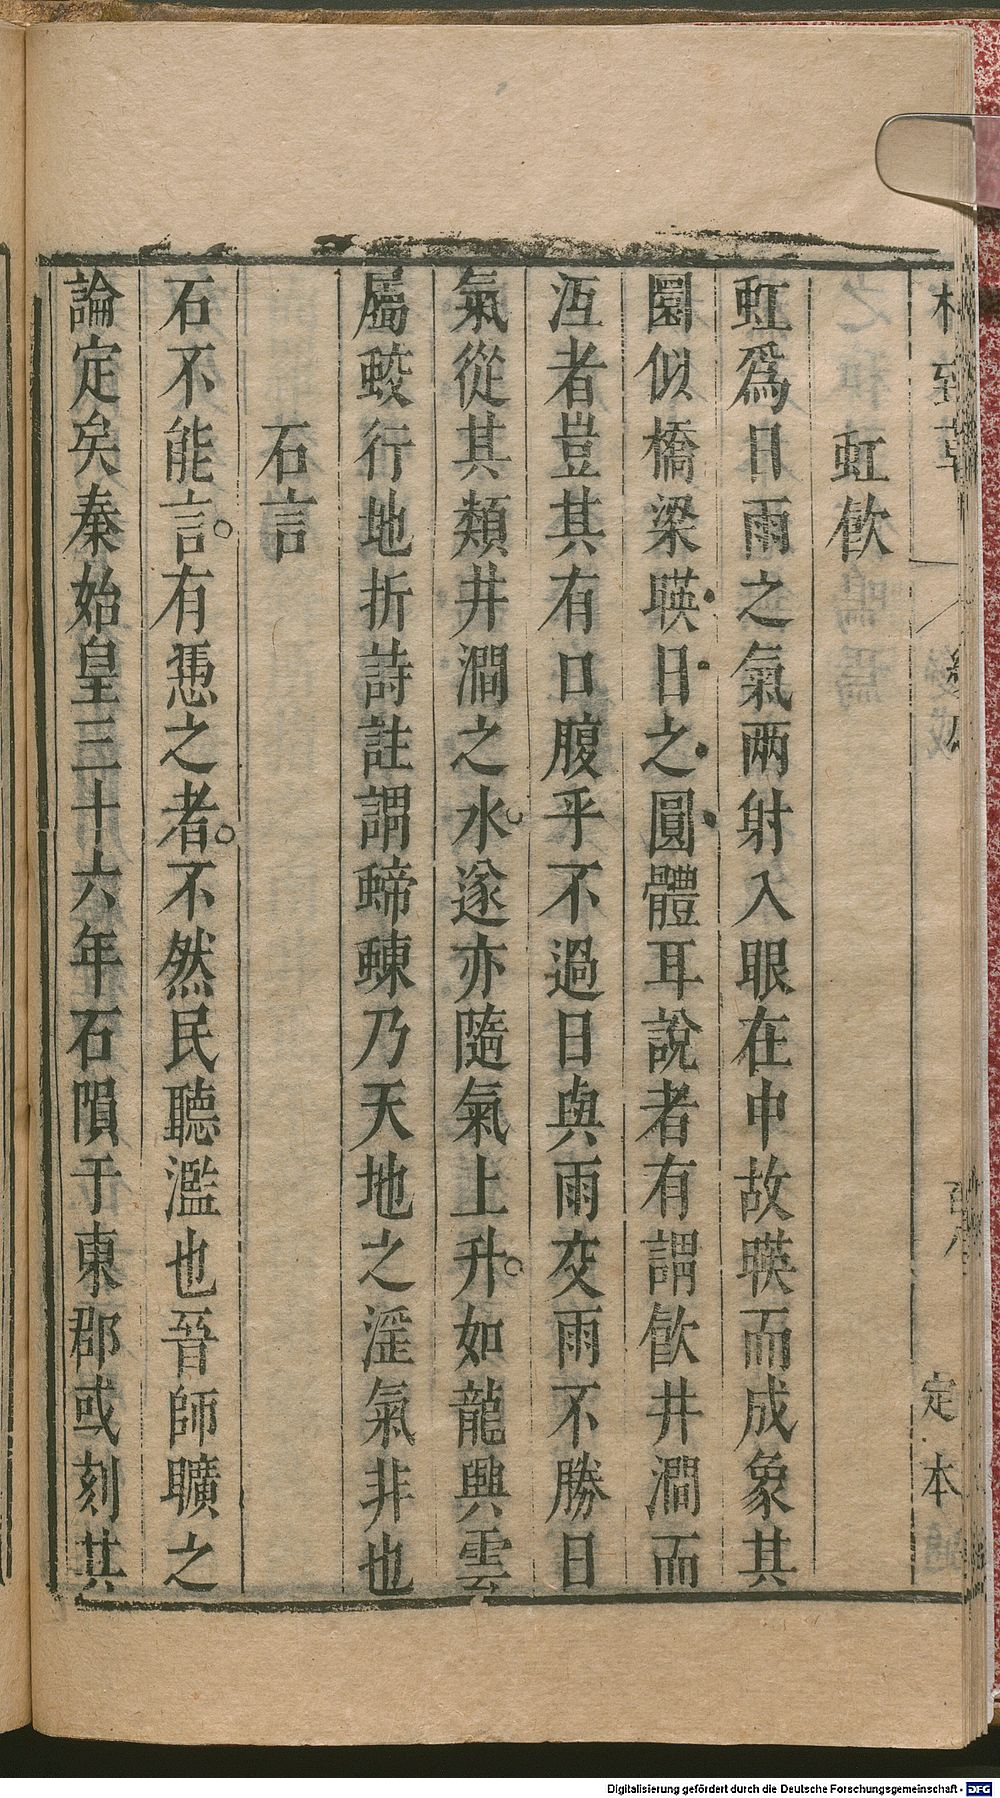 定本
虹飲
虹爲日雨之氣两射入眼在中故暎而成象其
圓似橋梁暎日之圓體耳說者有謂飲井澗而
沍者豈其有口腹乎不過日與雨交雨不勝日
氣從其類井澗之水遂亦隨氣上升如龍興雲
屬蛟行地折詩註謂螮蝀乃天地之淫氣非也
石言
石不能言有慿之者不然民聽濫也晉師曠之
論定矣秦始皇三十六年石隕于東郡或刻其
Digitalisierung gefördert durch die Deutsche Forschungsgemeinschaft - DFG